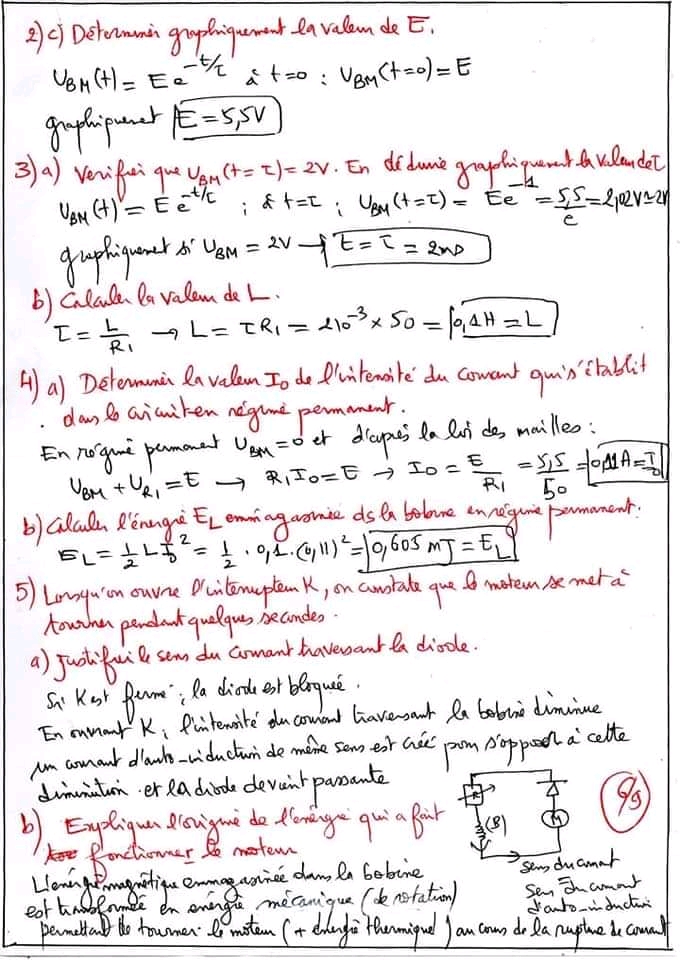 2) c) Déterminer graphiquement la valeur de E.
U_BM(t) = E e^(-t/τ) à t=0 : U_BM(t=0) = E
graphiquement E = 5,5V
3) a) Verifier que U_BM(t=τ) = 2V. En déduire graphiquement la valeur de τ
U_BM(t) = E e^(-t/τ) ; à t=τ ; U_BM(t=τ) = Ee^(-1) = 5,5/e = 2,02V ≃ 2V
graphiquement si U_BM = 2V → t = τ = 2ms
b) Calculer la valeur de L.
τ = L/R₁ → L = τR₁ = 2 10⁻³ × 50 = 0,1H = L
4) a) Déterminer la valeur I₀ de l'intensité du courant qui s'établit
dans le circuit en régime permanent.
En régime permanent U_BM = 0 et d'après la loi des mailles :
U_BM + U_R₁ = E → R₁I₀ = E → I₀ = E/R₁ = 5,5/50 = 0,11A = I₀
b) Calculer l'énergie E_L emmagasinée ds la bobine en régime permanent.
E_L = 1/2 L I₀² = 1/2 . 0,1 . (0,11)² = 0,605 mJ = E_L
5) Lorsqu'on ouvre l'interrupteur K, on constate que le moteur se met à
tourner pendant quelques secondes.
a) Justifier le sens du courant traversant la diode.
Si K est fermé ; la diode est bloquée.
En ouvrant K, l'intensité du courant traversant la bobine diminue
un courant d'auto-induction de même sens est créé pour s'opposer à cette
diminution et la diode devient passante
b) Expliquer l'origine de l'énergie qui a fait
fonctionner le moteur
L'énergie magnétique emmagasinée dans la bobine
est transformée en énergie mécanique (de rotation)
permettant de tourner le moteur (+ énergie thermique) au cours de la rupture de courant
R
(B)
M
sens du courant
sens du courant
d'auto-induction